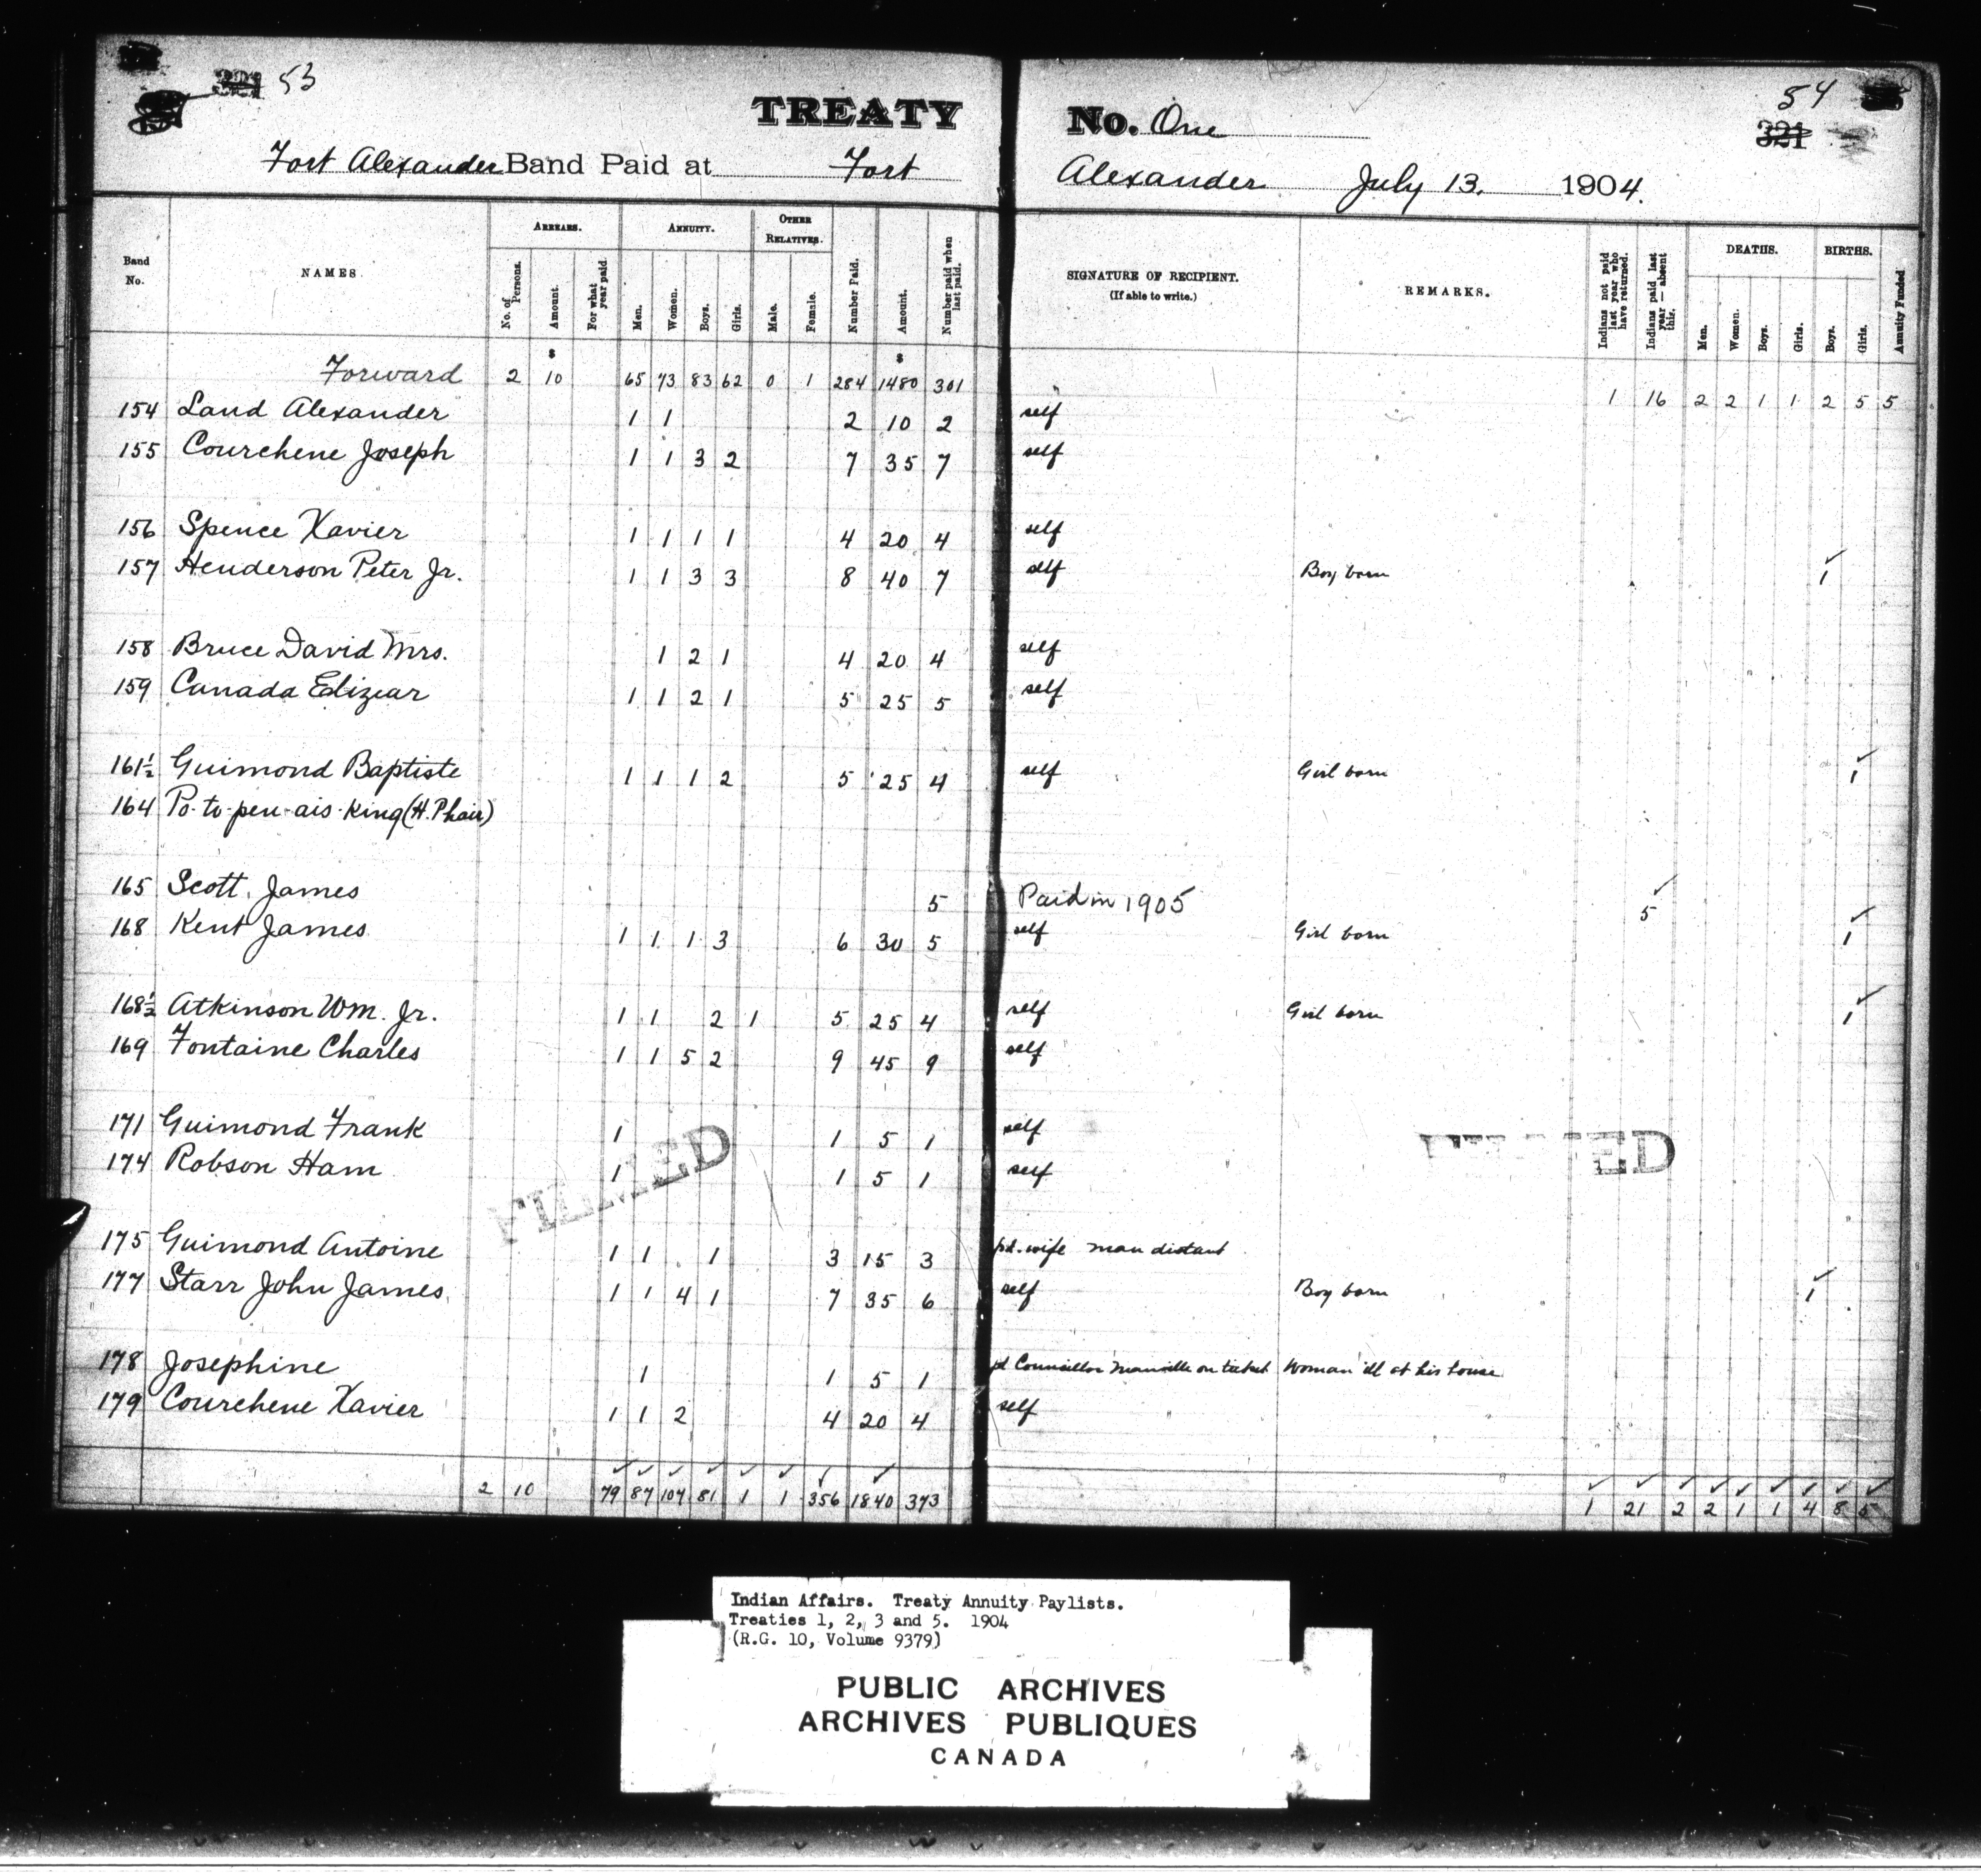 321 53
TREATY No. One
54
321
Fort Alexander Band Paid at Fort Alexander July 13. 1904.
Band No. NAMES. ARREARS. ANNUITY. OTHER RELATIVES. Number Paid. Amount. Number paid when last paid. SIGNATURE OF RECIPIENT. (If able to write.) REMARKS. Indians not paid last year who have returned. Indians paid last year — absent this. DEATHS. BIRTHS. Annuity Funded
No. of Persons. Amount. For what year paid Men. Women. Boys. Girls. Male. Female. Men. Women. Boys. Girls. Boys. Girls.
$ $
Forward 2 10 65 73 83 62 0 1 284 1480 301 1 16 2 2 1 1 2 5 5
154 Land Alexander 1 1 2 10 2 self
155 Courchene Joseph 1 1 3 2 7 35 7 self
156 Spence Xavier 1 1 1 1 4 20 4 self
157 Henderson Peter Jr. 1 1 3 3 8 40 7 self Boy born 1
158 Bruce David Mrs. 1 2 1 4 20 4 self
159 Canada Elizear 1 1 2 1 5 25 5 self
161½ Guimond Baptiste 1 1 1 2 5 25 4 self Girl born 1
164 Po-to-pen-ais-King (H. Phair)
165 Scott, James 5 Paid in 1905 5
168 Kent James 1 1 1 3 6 30 5 self Girl born 1
168½ Atkinson Wm. Jr. 1 1 2 1 5 25 4 self Girl born 1
169 Fontaine Charles 1 1 5 2 9 45 9 self
171 Guimond Frank 1 1 5 1 self
174 Robson Ham 1 1 5 1 self
FILMED
FILMED
175 Guimond Antoine 1 1 1 3 15 3 pd. wife man distant
177 Starr John James 1 1 4 1 7 35 6 self Boy born 1
178 Josephine 1 1 5 1 pd Councillor Manville on ticket Woman ill at his house
179 Courchene Xavier 1 1 2 4 20 4 self
2 10 79 87 107 81 1 1 356 1840 373 1 21 2 2 1 1 4 8 5
Indian Affairs. Treaty Annuity Paylists.
Treaties 1, 2, 3 and 5. 1904
(R.G. 10, Volume 9379)
PUBLIC ARCHIVES
ARCHIVES PUBLIQUES
CANADA